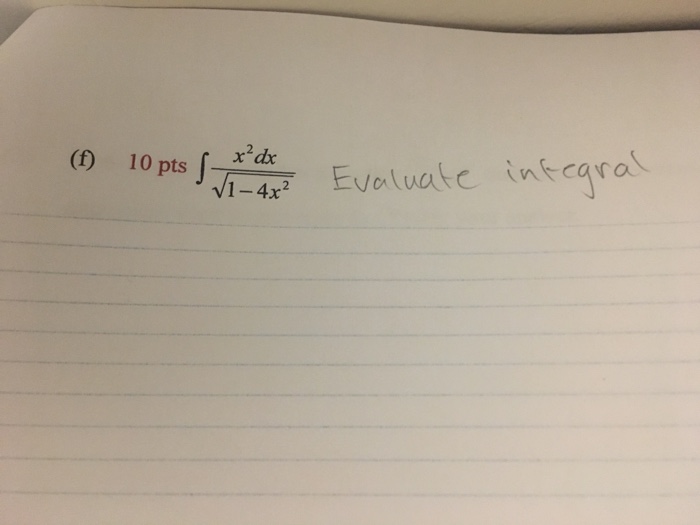 (f) 10 pts ∫ x²dx / √1-4x² Evaluate integral